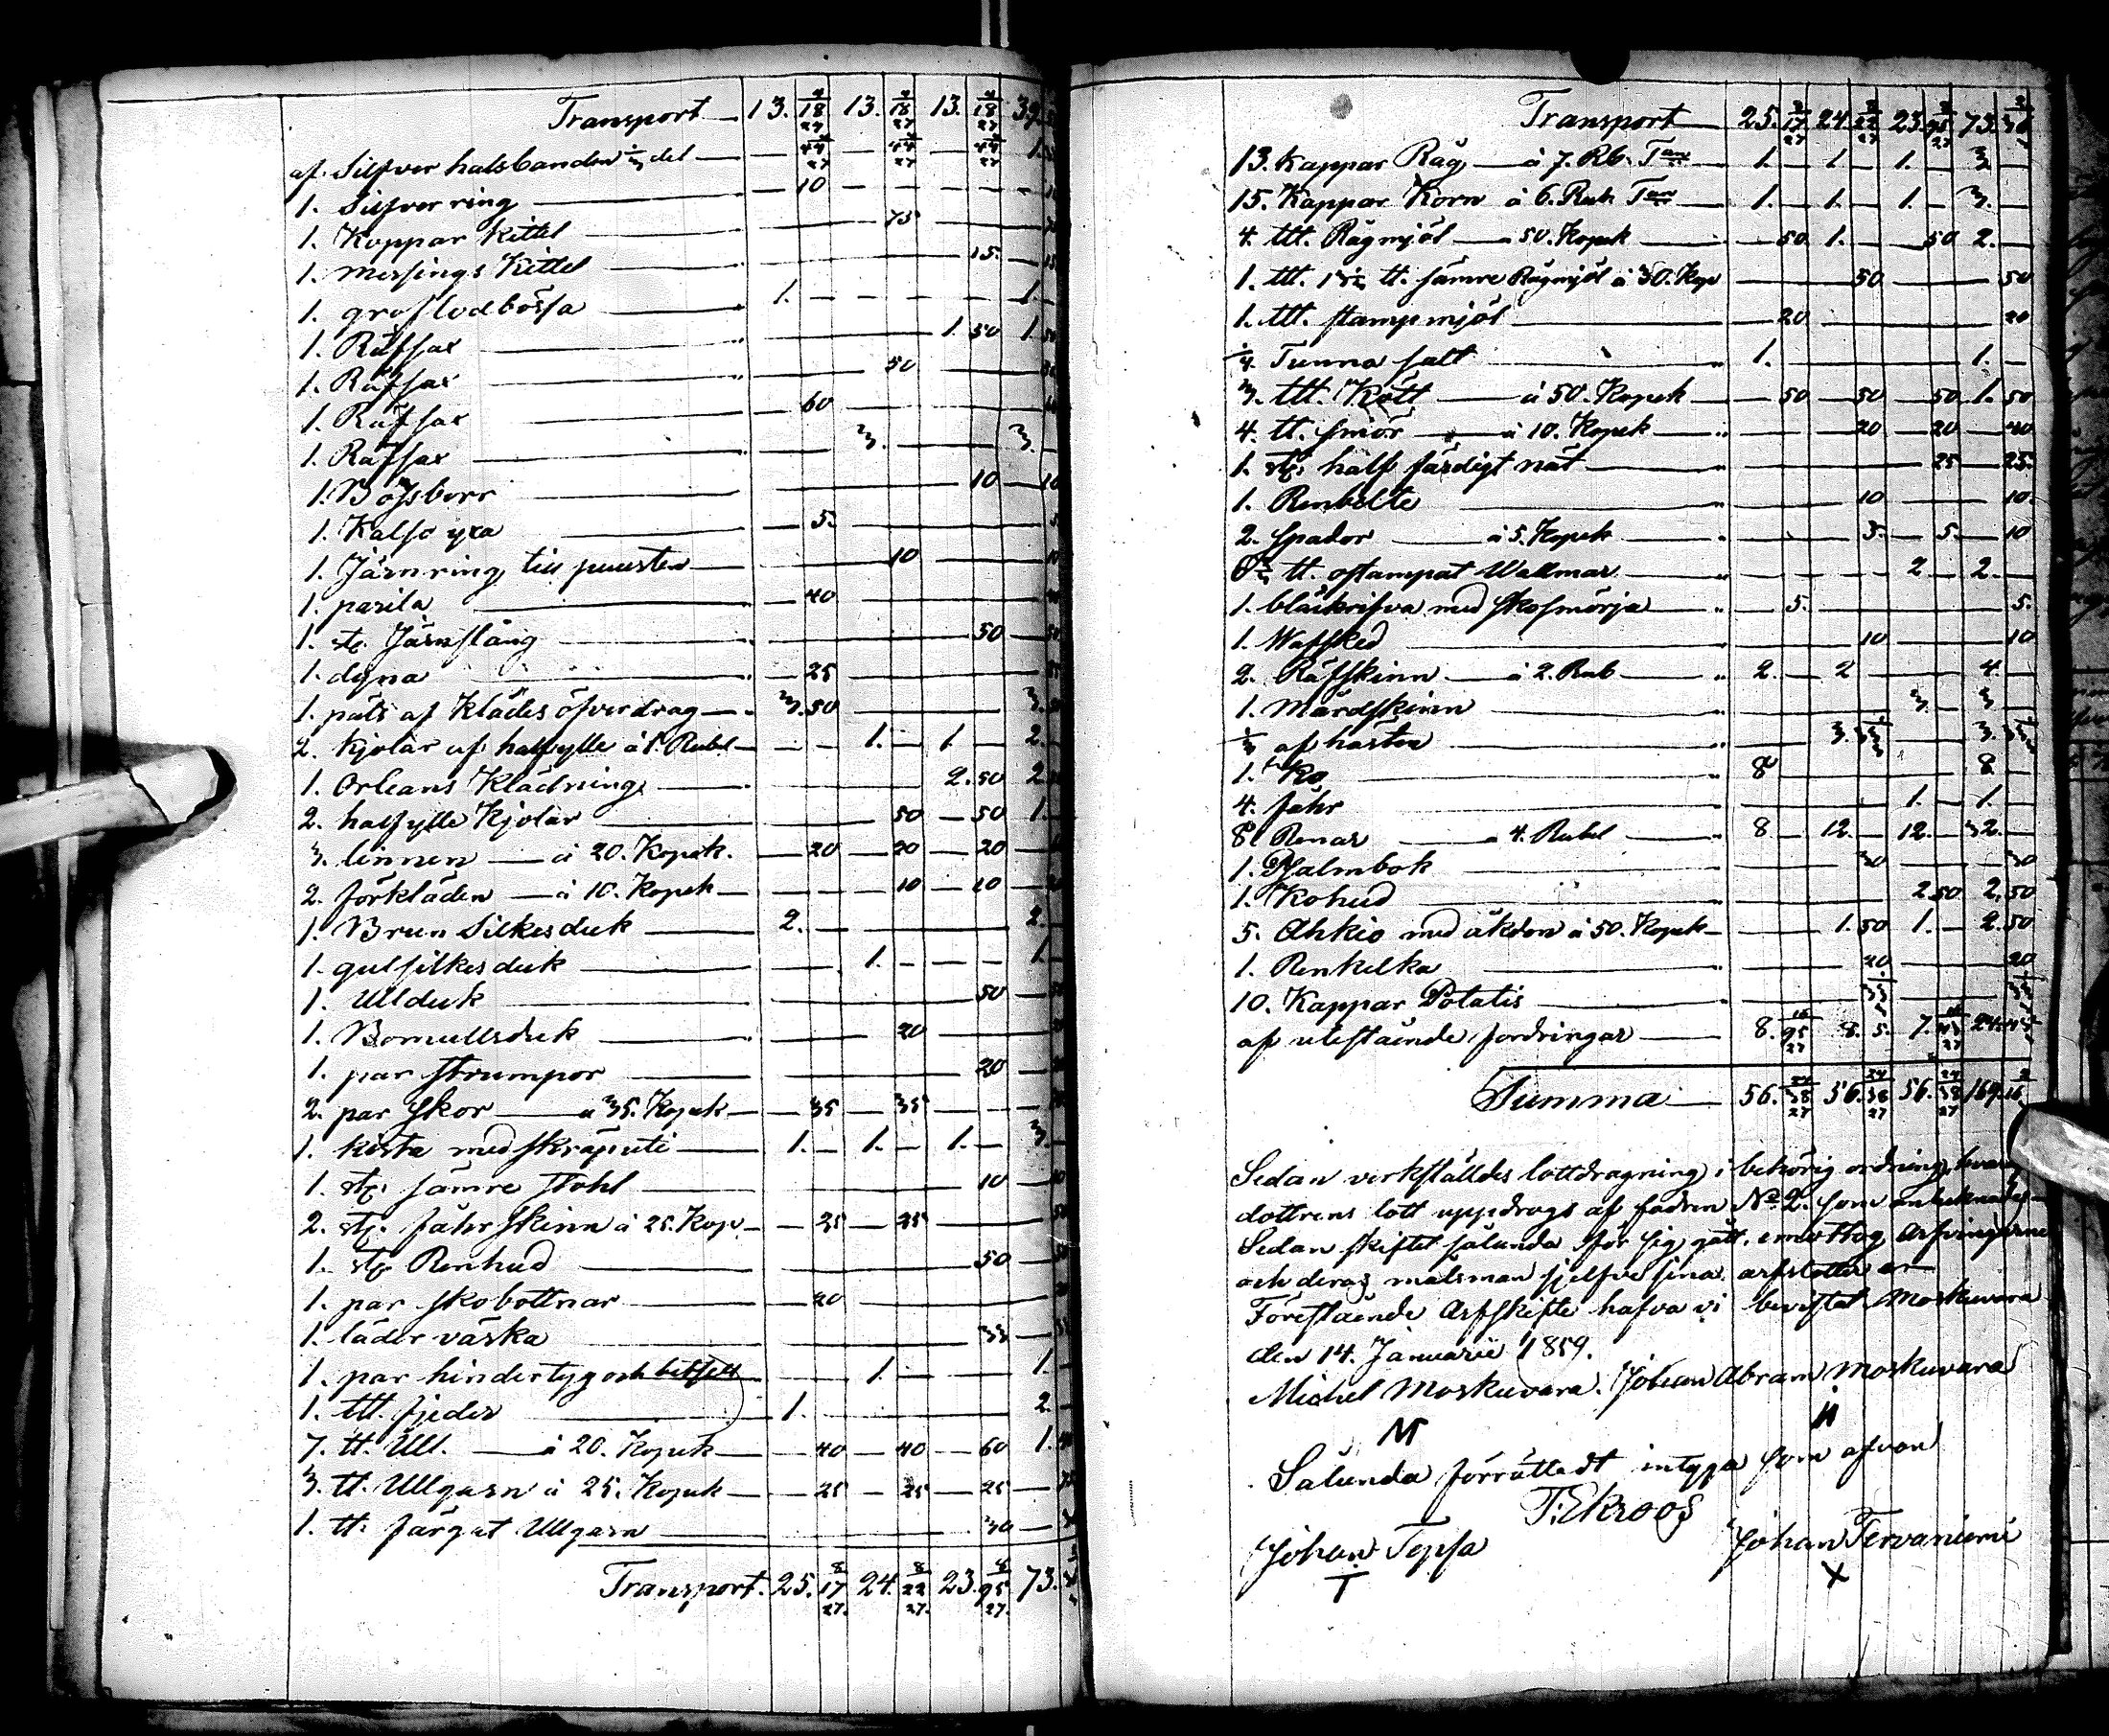 Transport — 13. 4/18/27 13. 4/18/27 13. 4/18/27 39.
af Silfver halsbanden 1/3 del — — 44/27 — 44/27 — 44/27 1.
1. Silfver ring — — 10 — — — — —
1. Koppar Kittel — 75
1. messings Kittel — 15. —
1. grof lodbössa — 1. — — — — — 1. —
1. Räfsax — 1. 50 1.
1. Räfsax — 50
1. Räfsax — 60
1. Räfsax — 3. — 3. —
1. Bössborr — 10 — 10
1. Kalso yxa — 5. — 5
1. Järnring till puusten — 10 — 10
1. parila — 40
1. st. Järnstång — 50 — 50
1. dyna — 25
1. päls af Klädes öfverdrag — 3. 50 — 3.
2. Kjolar af halfylle á 1. Rubel — — — 1. — 1. — 2. —
1. Orleans Klädning — 2. 50 2.
2. halfylle Kjolar — 50 — 50 1. —
3. linnen — á 20. Kopek. — 20 — 20 — 20 —
2. förkläden — á 10. Kopek — — — 10 — 10 —
1. Brun Silkesduk — 2. — 2. —
1. gul silkesduk — — — 1. — — — 1. —
1. Ullduk — 50 —
1. Bomullsduk — 20
1. par strumpor — 20 —
2. par Skor — á 35. Kopek — — 35 — 35 — — —
1. kista med skräputi — 1. — 1. — 1. — 3. —
1. st. sämre Stohl — 10 — 10
2. st. fåhrskinn á 25. Kop. — — 25 — 25 — 50
1. st. Renhud — 50 —
1. par skobottnar — 20
1. läder väska — 33 —
1. par hindertyg och betsell — — 1. — 1. —
1. ttt. fjeder — 1. — 2. —
7. tt. Ull. — á 20. Kopek — — 40 — 40 — 60 1. 40
3. tt. Ullgarn á 25. Kopek — — 25 — 25 — 25 — 75
1. tt. färgat Ullgarn — 30 —
Transport. 25. 8/17/27. 24. 8/22/27. 23. 8/95/27. 73.
Transport — 25. 17/27 24. 22/27 23. 95/27 73.
13. Kappar Råg — á 7. Rb. Tan — 1. — 1. — 1. — 3. —
15. Kappar Korn á 6. Rub. Tan — 1. — 1. — 1. — 3. —
4. ttt. Rågmjöl — á 50. Kopek — 50 1. — 50 2. —
1. ttt. tt. sämre Rågmjöl á 30. Kop — 50 — 50
1. ttt. stampmjöl — 20 — 20
1/4 Tunna salt — 1. — 1. —
3. ttt. Kött — á 50. Kopek — 50 — 50 — 50 1. 50
4. tt. smör — á 10. Kopek — 20 — 20 — 40
1. st. half färdigt nät — 25 — 25.
1. Renbelte — 10 — 10.
2. Spador — á 5. Kopek — 5. — 5. — 10
tt. ostampat Wallmar — 2 — 2. —
1. med skosmörja — 5. — 5.
1. Waffked — 10 — 10
2. Räfskinn — á 2. Rub — 2. — 2 — 4. —
1. Mårdskinn — 3. — 3 —
1/3 af hästen — 3. 33 1/3 — 3. 33 1/3
1. Ko — 8 — 8 —
4. fåhr — 1. — 1. —
8. Renar — á 4. Rubel — 8 — 12. — 12. — 32. —
1. Psalmbok — 30 — 30
1. Kohud — 2 50 2. 50
5. Ahkio med åkdon á 50. Kopek — 1. 50 1. — 2. 50
1. Renkelka — 20 — 20
10. Kappar Potatis — 33 — 33
af utestående fordringar — 8. 95/27 8. 5. 7. 27 24.
Summa — 56. 24/38/27 56. 24/38/27 56. 24/38/27 169.
Sedan verkställdes lottdragning i behörig ordning,
dottrens lott uppdrogs af fadren No 2. som
Sedan skiftet sålunda för sig gått, emottog Arfvingarne
och deras målsman sjelfve sina arfslotter
Förestående Arfskifte hafva vi bevistat Moskuvara
den 14. Januarii 1859.
Michel Moskuvara. Johan Abram Moskuvara
M
Sålunda förrättedt intyga som ofvan
T. Ekroos
Johan Tepsa Johan Tervaniemi
T X